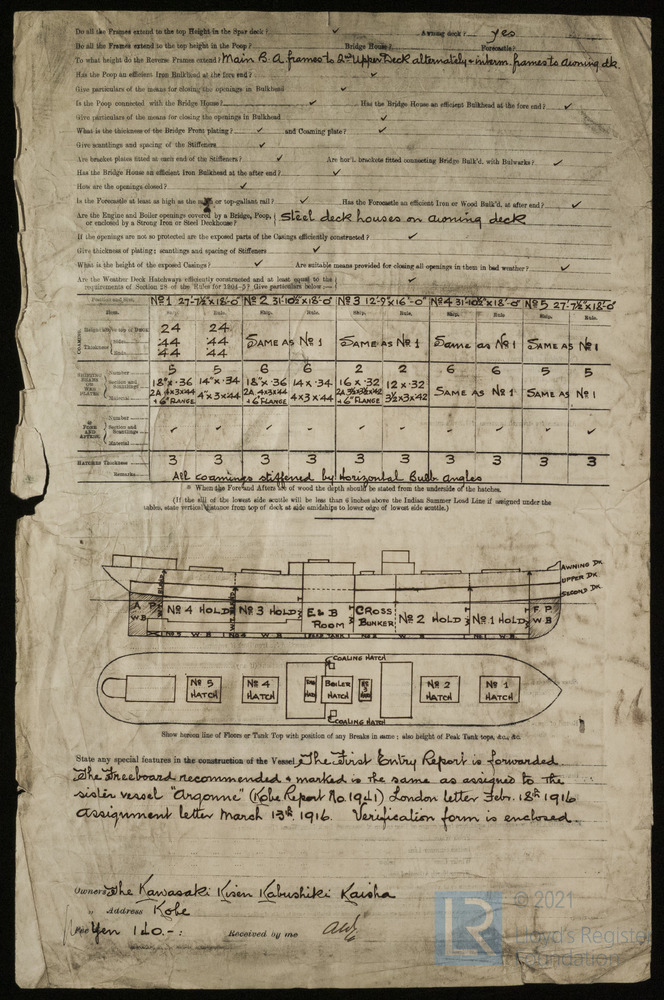 Do all the Frames extend to the top Height in the Spar deck? ✓ Awning deck? yes
Do all the Frames extend to the top height in the Poop? Bridge House? Forecastle?
To what height do the Reverse Frames extend? Main B. A frames to 2nd Upper Deck alternately & interm. frames to awning dk.
Has the Poop an efficient Iron Bulkhead at the fore end? ✓
Give particulars of the means for closing the openings in Bulkhead ✓
Is the Poop connected with the Bridge House? ✓ Has the Bridge House an efficient Bulkhead at the fore end? ✓
Give particulars of the means for closing the openings in Bulkhead ✓
What is the thickness of the Bridge Front plating? ✓ and Coaming plate? ✓
Give scantlings and spacing of the Stiffeners ✓
Are bracket plates fitted at each end of the Stiffeners? ✓ Are hor'l. brackets fitted connecting Bridge Bulk'd. with Bulwarks? ✓
Has the Bridge House an efficient Iron Bulkhead at the after end? ✓
How are the openings closed? ✓
Is the Forecastle at least as high as the main or top-gallant rail? ✓ Has the Forecastle an efficient Iron or Wood Bulk'd. at after end? ✓
Are the Engine and Boiler openings covered by a Bridge, Poop, or enclosed by a Strong Iron or Steel Deckhouse? Steel deck houses on awning deck
If the openings are not so protected are the exposed parts of the Casings efficiently constructed? ✓
Give thickness of plating; scantlings and spacing of Stiffeners ✓
What is the height of the exposed Casings? ✓ Are suitable means provided for closing all openings in them in bad weather? ✓
Are the Weather Deck Hatchways efficiently constructed and at least equal to the
requirements of Section 28 of the Rules for 1904-5? Give particulars below:— ✓
Position and Size. No 1 27-7½"x18'-0" No 2 31'-10½"x18'-0" No 3 12-9"x16'-0" No 4 31-10½"x18'-0" No 5 27-7½"x18'-0"
Item. Ship. Rule. Ship. Rule. Ship. Rule. Ship. Rule. Ship. Rule.
COAMING Height above top of Deck 24 24
Thickness Sides .44 .44 SAME AS No 1 SAME AS No 1 Same as No 1 SAME AS No 1
Ends .44 .44
SHIFTING BEAMS OR WEB PLATES Number 5 5 6 6 2 2 6 6 5 5
Section and Scantlings 18"x.36 14"x.34 18"x.36 14x.34 16x.32 12x.32
Material 2A 4x3x44 + 6" FLANGE 4"x3x44 2A 4x3x44 + 6" FLANGE 4x3x44 + 6" FLANGE 3½x3x42 SAME AS No 1 SAME AS No 1
* FORE AND AFTERS Number
Section and Scantlings ✓ ✓ ✓ ✓ ✓ ✓ ✓ ✓ ✓ ✓
Material
HATCHES Thickness 3 3 3 3 3 3 3 3 3 3
Remarks All coamings stiffened by Horizontal Bulb angles
* When the Fore and Afters are of wood the depth should be stated from the underside of the hatches.
(If the sill of the lowest side scuttle will be less than 6 inches above the Indian Summer Load Line if assigned under the
tables, state vertical distance from top of deck at side amidships to lower edge of lowest side scuttle.)
AWNING DK
UPPER DK.
SECOND DK.
A P W B No 4 HOLD No 3 HOLD E & B ROOM CROSS BUNKER No 2 HOLD No 1 HOLD F P W B
COALING HATCH
No 5 HATCH No 4 HATCH BOILER HATCH No 2 HATCH No 1 HATCH
COALING HATCH
Show hereon line of Floors or Tank Top with position of any Breaks in same; also height of Peak Tank tops, &c., &c.
State any special features in the construction of the Vessel The First Entry Report is forwarded.
The Freeboard recommended & marked is the same as assigned to the
sister vessel "Argonne" (Kobe Report No. 1941) London letter Feb. 18th 1916
assignment letter March 13th 1916. Verification form is enclosed.
Owners The Kawasaki Kisen Kabushiki Kaisha
" Address Kobe
Fee Yen 140.-: Received by me
© 2021
LR Lloyd's Register
Foundation